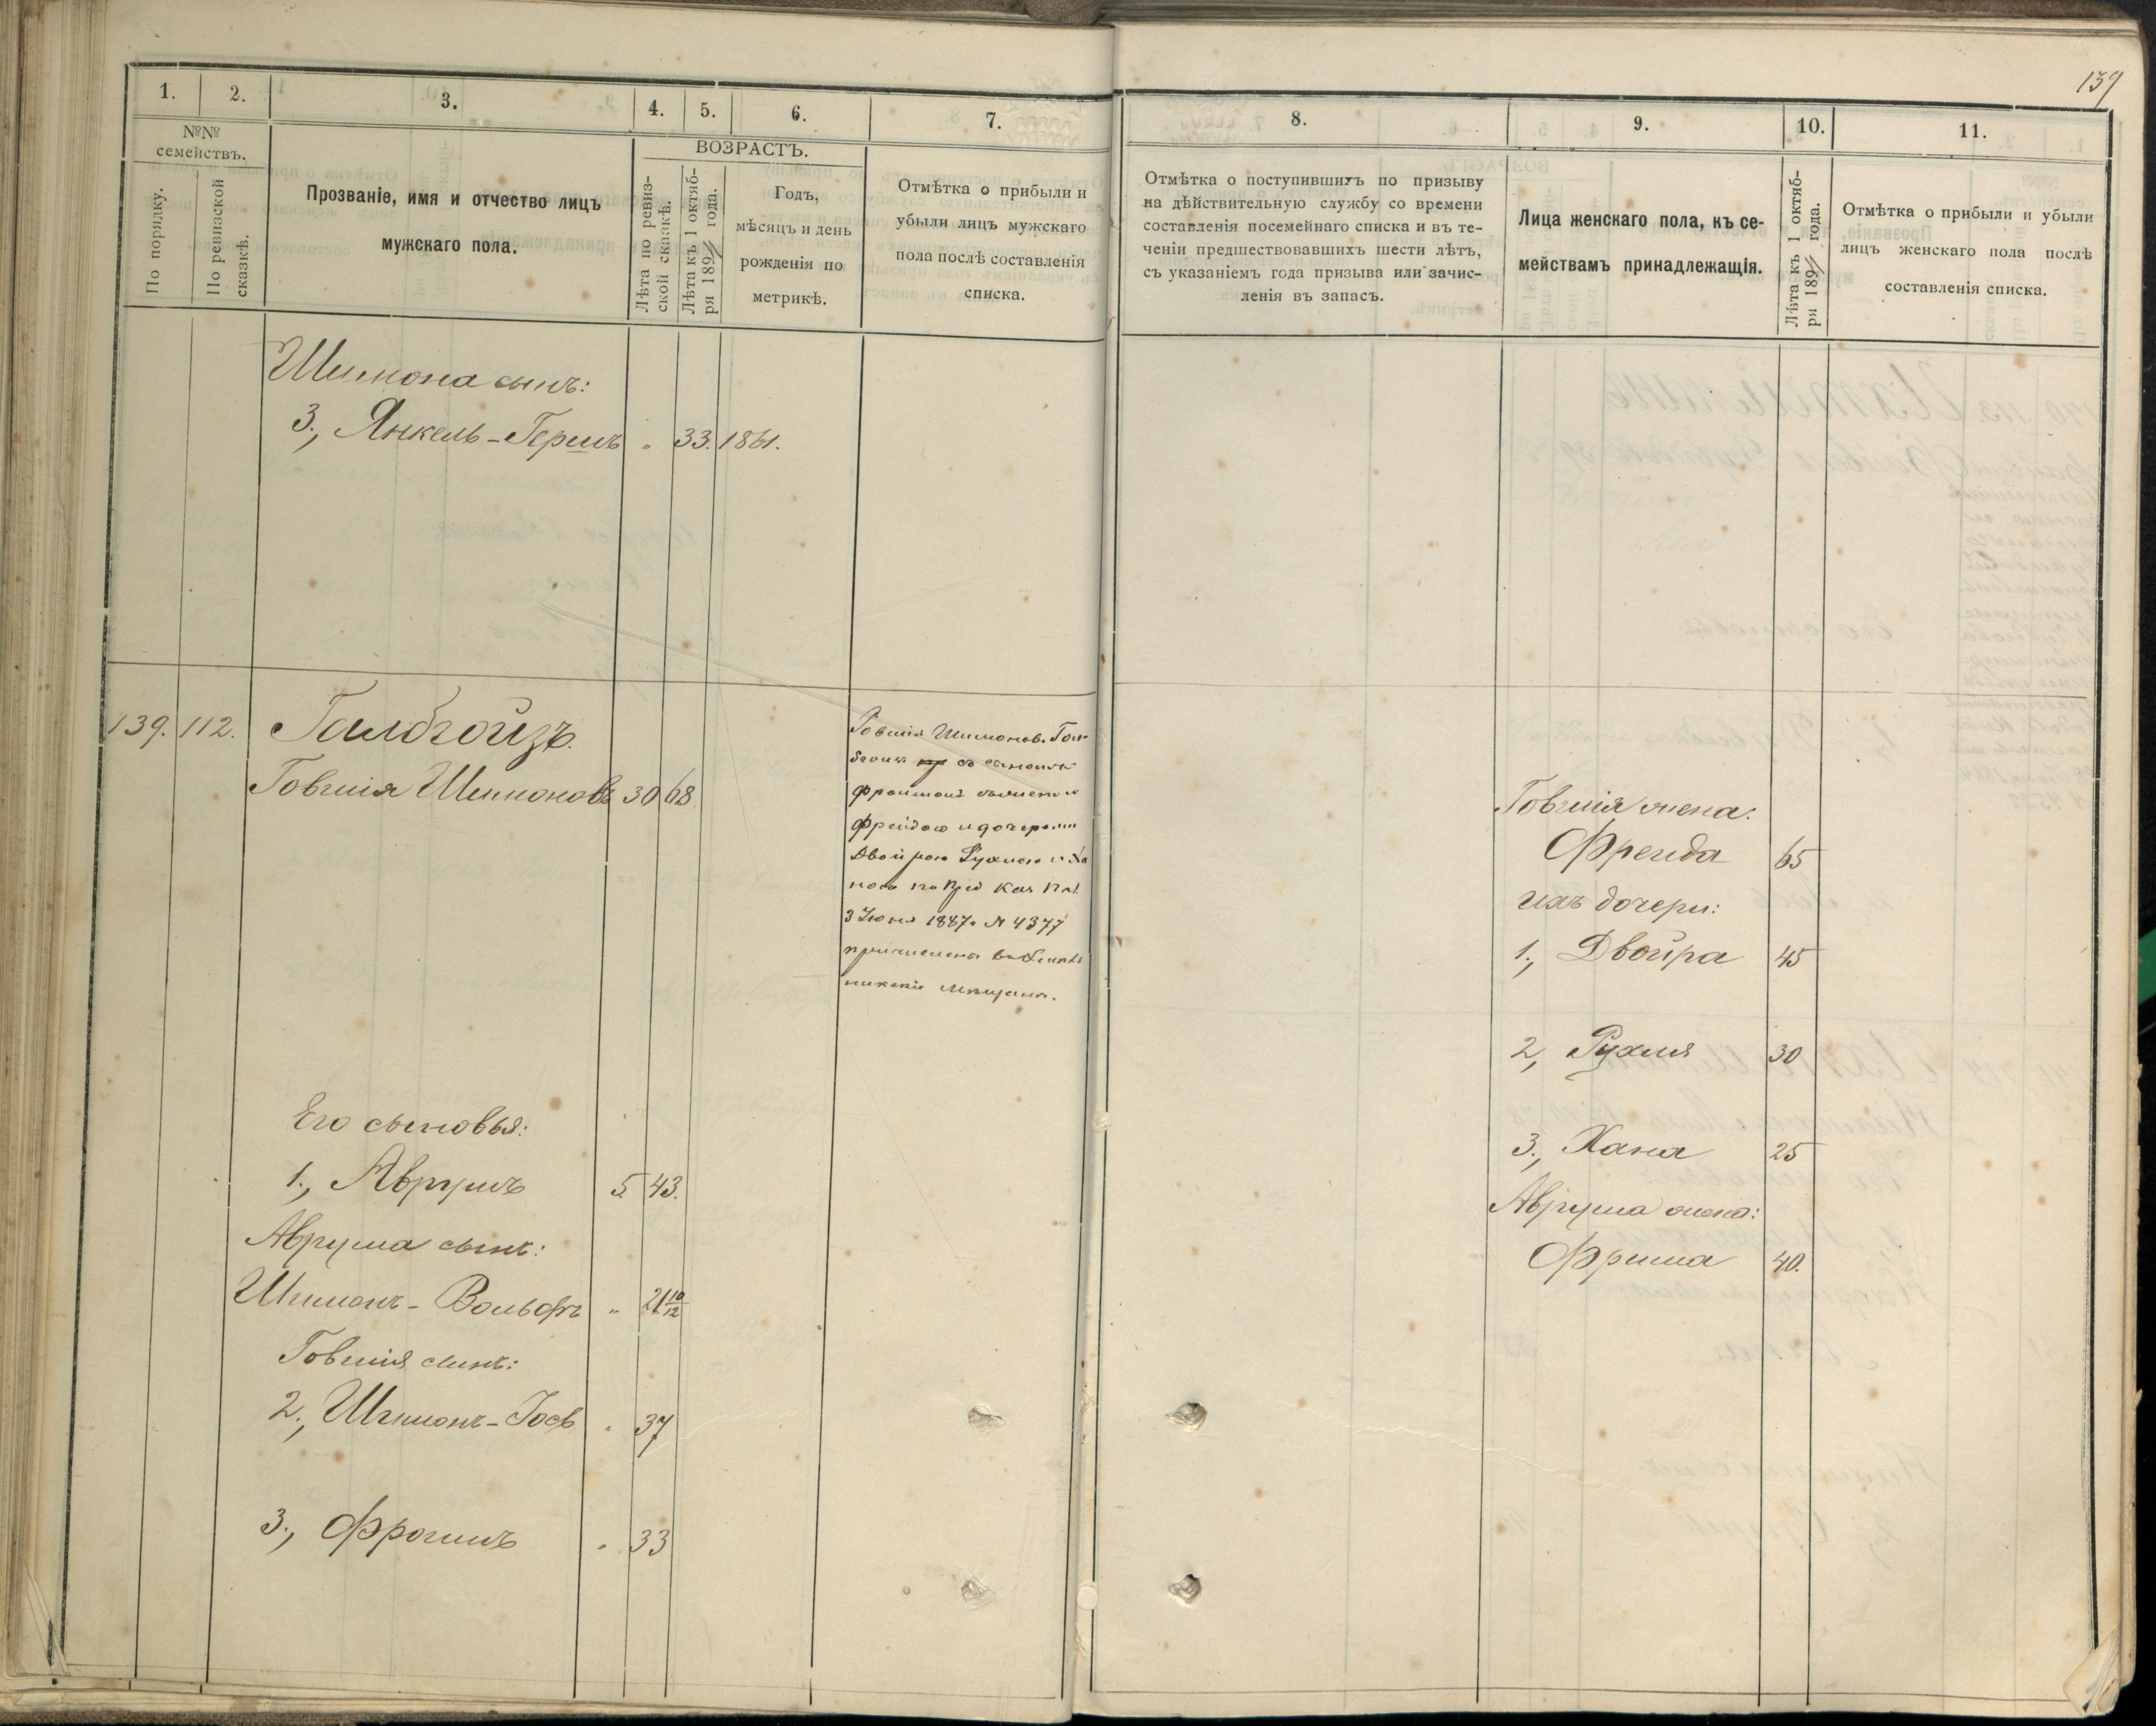 139
1.
2.
3.
4.
5.
6.
7.
№№ семействъ.
По порядку.
По ревизской сказкѣ.
Прозваніе, имя и отчество лицъ
мужскаго пола.
ВОЗРАСТЪ.
Лѣта по ревиз-
ской сказкѣ.
Лѣта къ 1 октяб-
ря 189 года.
Годъ,
мѣсяцъ и день
рожденія по
метрикѣ.
Отмѣтка о прибыли и
убыли лицъ мужскаго
пола послѣ составленія
списка.
8.
9.
10.
11.
Отмѣтка о поступившихъ по призыву
на дѣйствительную службу со времени
составленія посемейнаго списка и въ те-
ченіи предшествовавшихъ шести лѣтъ,
съ указаніемъ года призыва или зачис-
ленія въ запасъ.
Лица женскаго пола, къ се-
мействамъ принадлежащія.
Лѣта къ 1 октяб-
ря 189 года.
Отмѣтка о прибыли и убыли
лицъ женскаго пола послѣ
составленія списка.
Шимона сынъ:
3., Янкель-Гершъ " 33. 1861.
139. 112. Галбгойзъ.
Говшія Шимоновъ 30 68
Говшія Шимонов. Гал-
бгойз съ сыномъ
Фроимомъ
Фрейдою и дочерьми
Двойрою Рухлею и Ха
ною по Каз Пал
3 Іюня 1887 № 4377
причислены
Его сыновья:
1., Аврумъ 5. 43.
Аврума сынъ:
Шимонъ-Вольфъ " 21 10/12
Говшія сынъ:
2., Шимонъ-Іосъ " 37
3., Фроимъ " 33
Говшія жена:
Фрейда 65
ихъ дочери:
1., Двойра 45
2., Рухля 30
3., Хана 25
Аврума жена:
Фрима 40.